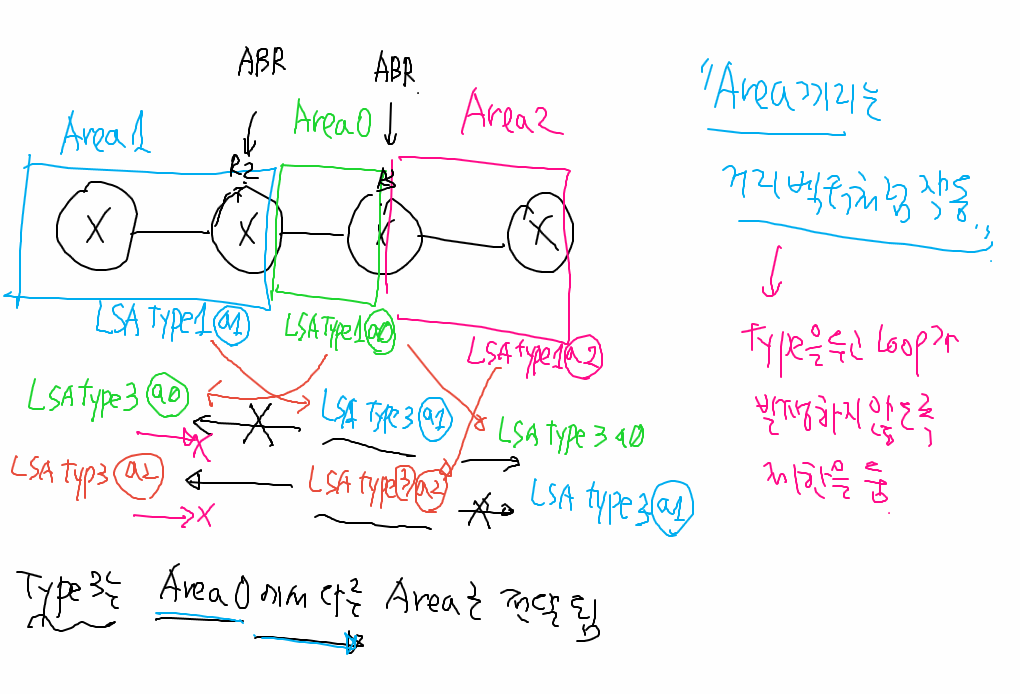 ABR
ABR
Area1
Area0
Area2
R2
X
X
X
X
LSA Type1 a1
LSA Type1 a0
LSA Type1 a2
LSA Type3 a0
X
LSA Type3 a1
LSA Type3 a0
X
LSA Typ3 a2
LSA Type3 a2
X
LSA Type3 a1
X
Type3는 Area0에서 다른 Area로 전달 됨
"Area끼리는
거리벡터처럼 작동"
↓
Type을 두고 Loop가
발생하지 않도록
제한을 둠